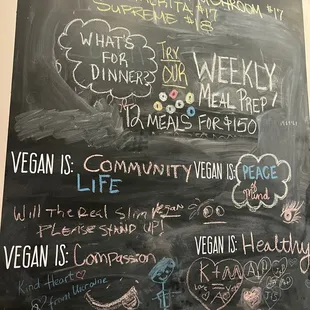 MUSHROOM $17
$17
SUPREME $18
WHAT'S
FOR
DINNER?
TRY
OUR
WEEKLY
MEAL PREP
12 MEALS FOR $150
VEGAN IS: COMMUNITY
LIFE
VEGAN IS: PEACE
of
Mind
Will The Real Slim Vegan
PLEASE STAND UP!
VEGAN IS: Compassion
VEGAN IS: Healthy
Kind Heart
from Ukraine